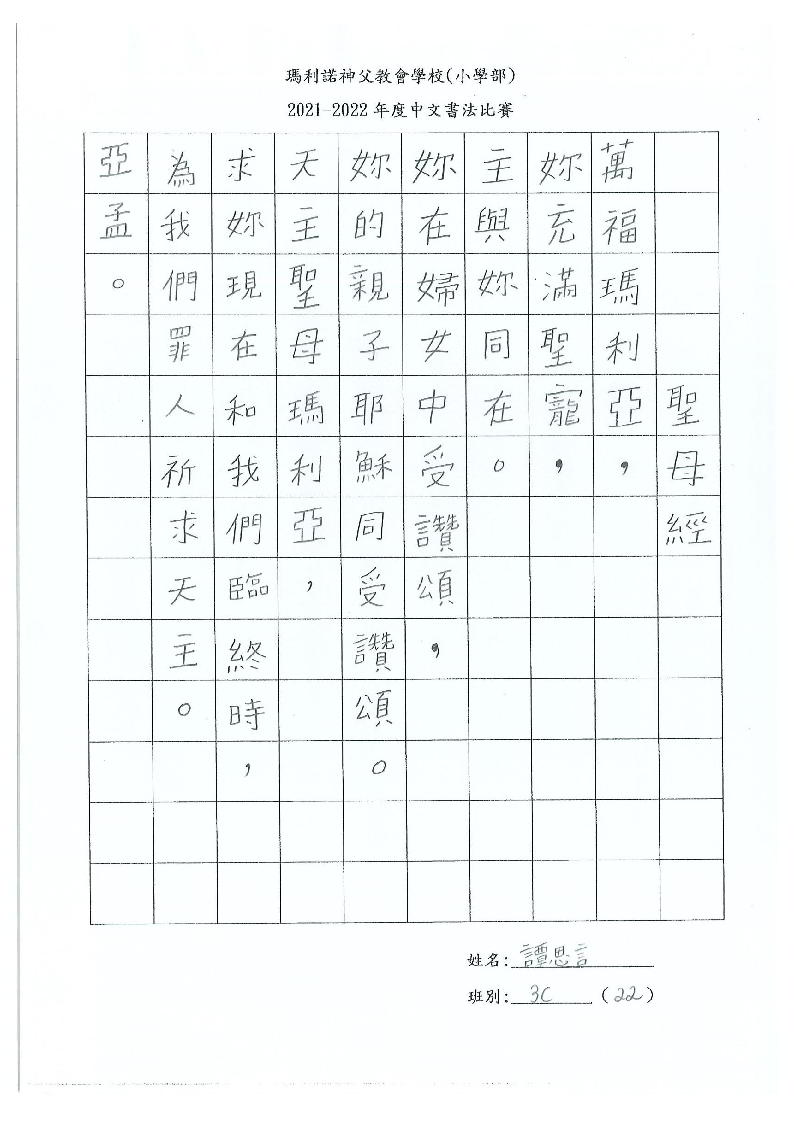 瑪利諾神父教會學校(小學部)
2021-2022 年度中文書法比賽
聖母經
萬福瑪利亞，
妳充滿聖寵，
主與妳同在。
妳在婦女中受讚頌，
妳的親子耶穌同受讚頌。
天主聖母瑪利亞，
求妳現在和我們臨終時，
為我們罪人祈求天主。
亞孟。
姓名:譚恩言
班別: 3C (22)